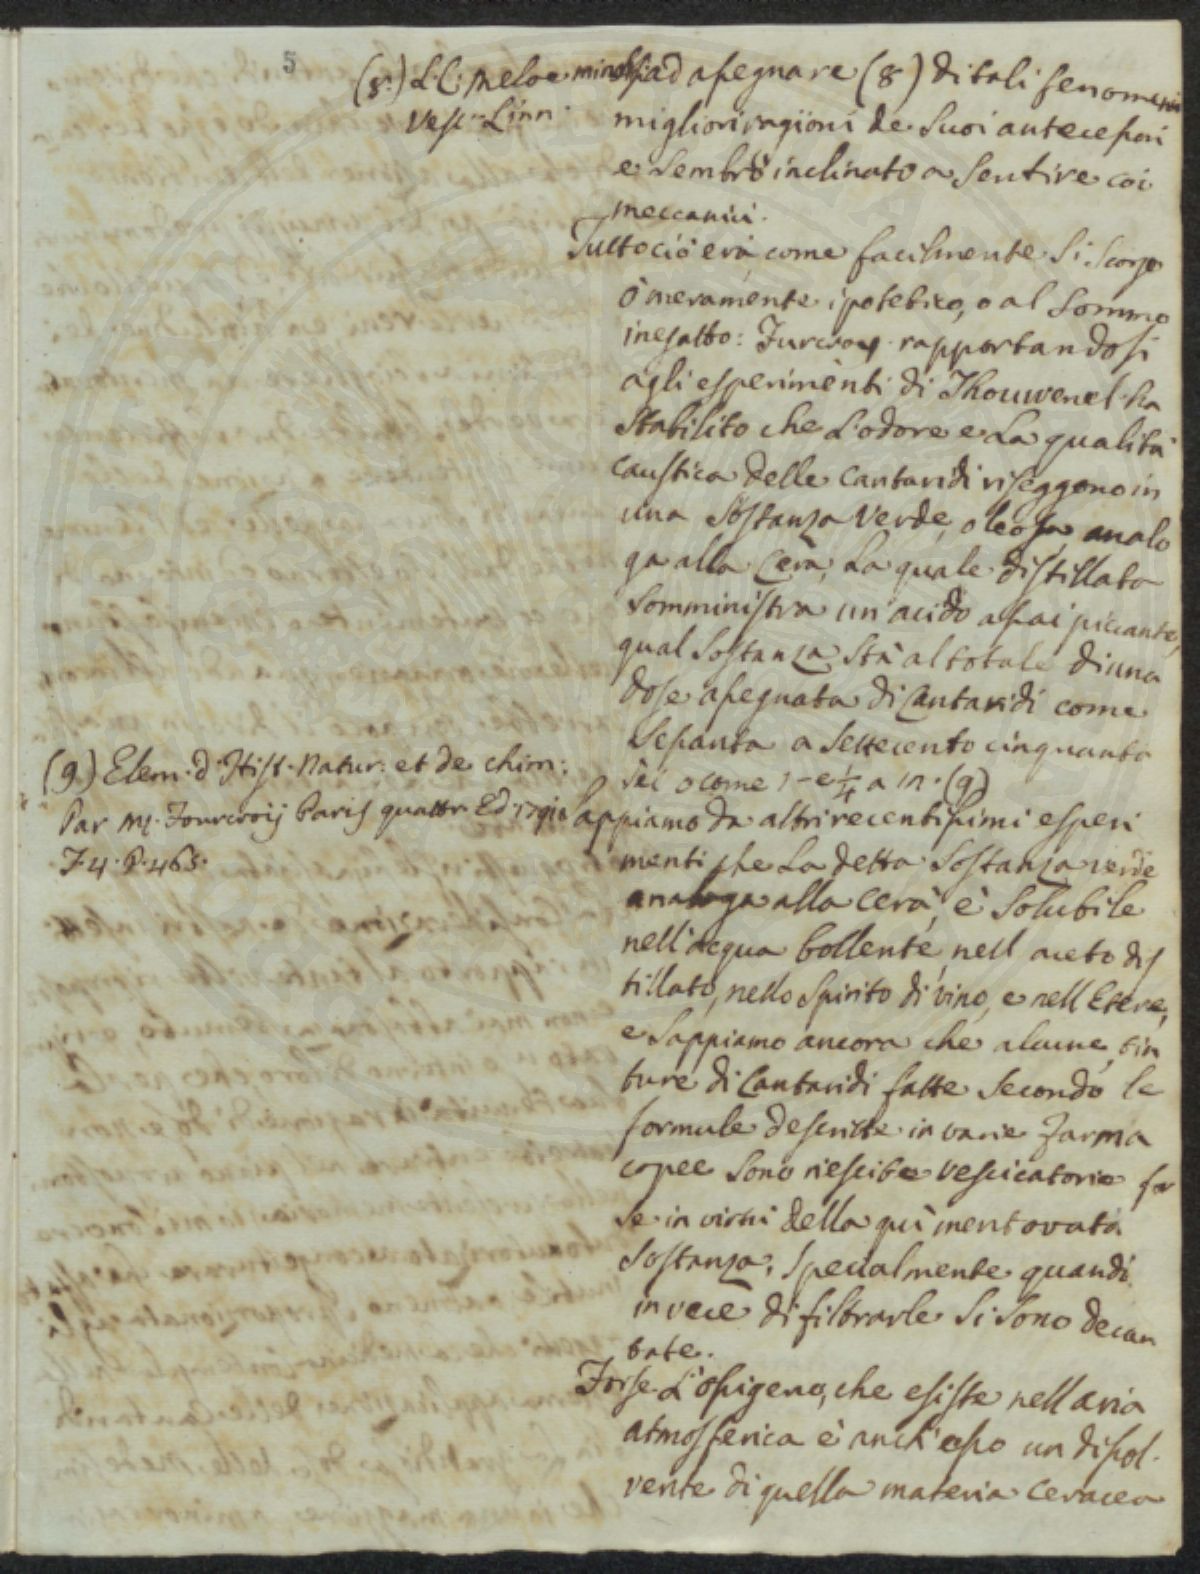 5
(8.) L. C. Meloe
Vesc. Linn.
ad assegnare (8) di tali fenomeni
migliori ragioni de suoi antecessori
e sembrò inclinato a sentire coi
meccanici.
Tuttociò era, come facilmente si scorge
ò meramente ipotetico, o al sommo
inesatto: Furcroy rapportandosi
agli esperimenti di Thouvenel ha
stabilito che l'odore e la qualità
caustica delle cantaridi riseggono in
una sostanza verde, oleosa, analo
ga alla cera, la quale distillata
somministra un'acido assai piccante,
qual sostanza stà al totale di una
dose assegnata di Cantaridi come
sessanta a settecento cinquanta
sei o come 1 e ¼ a 12. (9)
(9.) Elem. d'Hist. Natur. et de chim:
Par Mr. Fourcroij Paris quattr. Ed.
T. 4. P. 465.
Sappiamo da altri recentissimi esperi
menti che la detta sostanza verde
analoga alla cera, è solubile
nell'acqua bollente, nell aceto dis
tillato, nello spirito di vino, e nell Etere,
e sappiamo ancora che alcune tin
ture di Cantaridi fatte secondo le
formule descritte in varie Farma
copee sono riescite vescicatorie for
se in virtù della quì mentovata
sostanza, specialmente quando
in vece di filtrarle si sono decan
tate.
Forse l'ossigeno, che esiste nell aria
atmosferica è anch'esso un dissol-
vente di quella materia ceracea